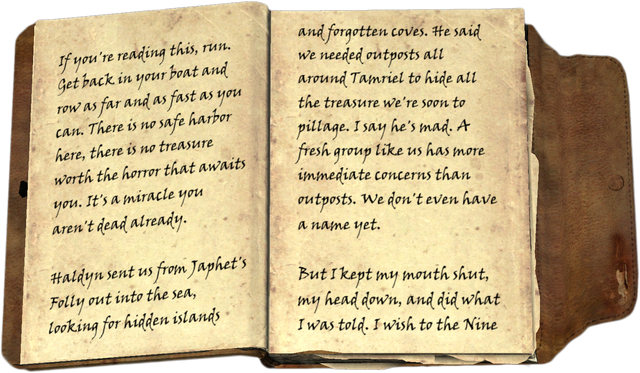 If you're reading this, run.
Get back in your boat and
row as far and as fast as you
can. There is no safe harbor
here, there is no treasure
worth the horror that awaits
you. It's a miracle you
aren't dead already.
Haldyn sent us from Japhet's
Folly out into the sea,
looking for hidden islands
and forgotten coves. He said
we needed outposts all
around Tamriel to hide all
the treasure we're soon to
pillage. I say he's mad. A
fresh group like us has more
immediate concerns than
outposts. We don't even have
a name yet.
But I kept my mouth shut,
my head down, and did what
I was told. I wish to the Nine